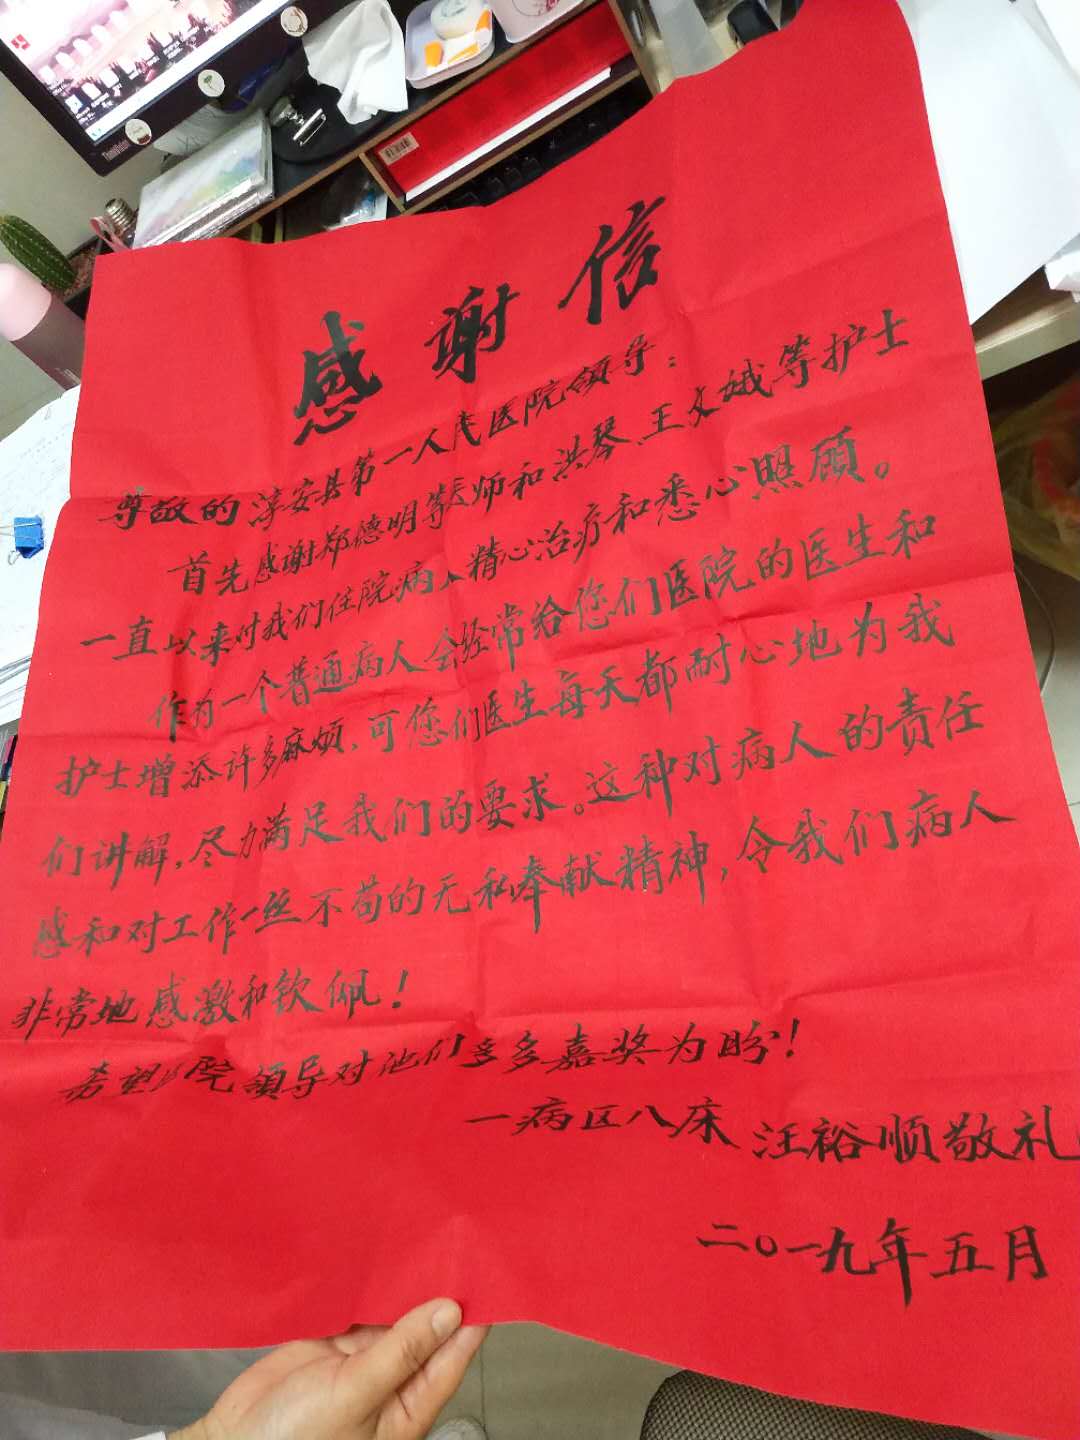 感谢信
尊敬的淳安县第一人民医院领导：
首先感谢郑德明等医师和洪琴、王文娥等护士
一直以来对我们住院病人精心治疗和悉心照顾。
作为一个普通病人会经常给您们医院的医生和
护士增添许多麻烦，可您们医生每天都耐心地为我
们讲解，尽力满足我们的要求。这种对病人的责任
感和对工作一丝不苟的无私奉献精神，令我们病人
非常地感激和钦佩！
希望 院领导对他们多多嘉奖为盼！
一病区八床 汪裕顺敬礼
二〇一九年五月